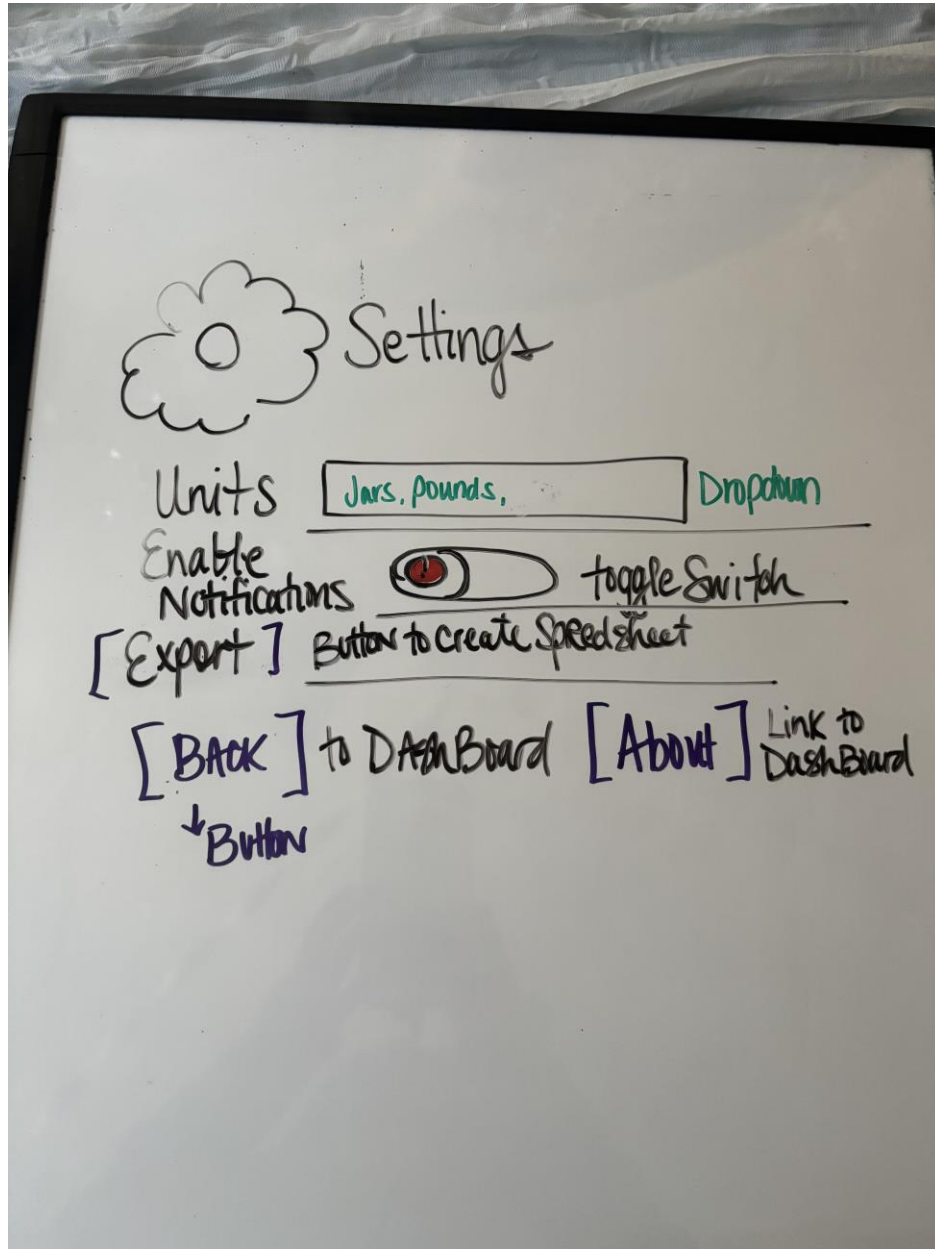 Settings
Units Jars, pounds, Dropdown
Enable
Notifications toggle Switch
[Export] Button to Create Spredsheet
[BACK] to DAshBoard [About] Link to
DashBoard
↓ Button